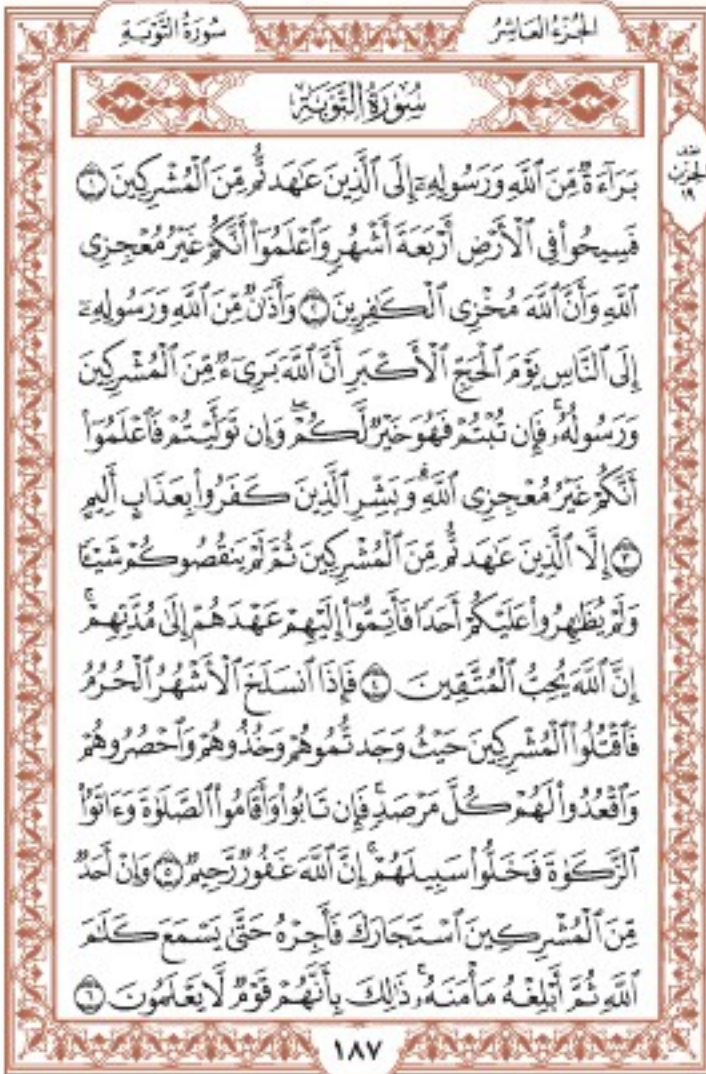 الجزء العاشر
سورة التوبة
سُورَةُ التَّوْبَةِ
نصف
الحزب
١٩
بَرَآءَةٌ مِّنَ ٱللَّهِ وَرَسُولِهِۦٓ إِلَى ٱلَّذِينَ عَٰهَدتُّم مِّنَ ٱلْمُشْرِكِينَ ١
فَسِيحُوا۟ فِى ٱلْأَرْضِ أَرْبَعَةَ أَشْهُرٍ وَٱعْلَمُوٓا۟ أَنَّكُمْ غَيْرُ مُعْجِزِى
ٱللَّهِ وَأَنَّ ٱللَّهَ مُخْزِى ٱلْكَٰفِرِينَ ٢ وَأَذَٰنٌ مِّنَ ٱللَّهِ وَرَسُولِهِۦٓ
إِلَى ٱلنَّاسِ يَوْمَ ٱلْحَجِّ ٱلْأَكْبَرِ أَنَّ ٱللَّهَ بَرِىٓءٌ مِّنَ ٱلْمُشْرِكِينَ
وَرَسُولُهُۥ ۚ فَإِن تُبْتُمْ فَهُوَ خَيْرٌ لَّكُمْ ۖ وَإِن تَوَلَّيْتُمْ فَٱعْلَمُوٓا۟
أَنَّكُمْ غَيْرُ مُعْجِزِى ٱللَّهِ ۗ وَبَشِّرِ ٱلَّذِينَ كَفَرُوا۟ بِعَذَابٍ أَلِيمٍ
٣ إِلَّا ٱلَّذِينَ عَٰهَدتُّم مِّنَ ٱلْمُشْرِكِينَ ثُمَّ لَمْ يَنقُصُوكُمْ شَيْـًٔا
وَلَمْ يُظَٰهِرُوا۟ عَلَيْكُمْ أَحَدًا فَأَتِمُّوٓا۟ إِلَيْهِمْ عَهْدَهُمْ إِلَىٰ مُدَّتِهِمْ ۚ
إِنَّ ٱللَّهَ يُحِبُّ ٱلْمُتَّقِينَ ٤ فَإِذَا ٱنسَلَخَ ٱلْأَشْهُرُ ٱلْحُرُمُ
فَٱقْتُلُوا۟ ٱلْمُشْرِكِينَ حَيْثُ وَجَدتُّمُوهُمْ وَخُذُوهُمْ وَٱحْصُرُوهُمْ
وَٱقْعُدُوا۟ لَهُمْ كُلَّ مَرْصَدٍ ۚ فَإِن تَابُوا۟ وَأَقَامُوا۟ ٱلصَّلَوٰةَ وَءَاتَوُا۟
ٱلزَّكَوٰةَ فَخَلُّوا۟ سَبِيلَهُمْ ۚ إِنَّ ٱللَّهَ غَفُورٌ رَّحِيمٌ ٥ وَإِنْ أَحَدٌ
مِّنَ ٱلْمُشْرِكِينَ ٱسْتَجَارَكَ فَأَجِرْهُ حَتَّىٰ يَسْمَعَ كَلَٰمَ
ٱللَّهِ ثُمَّ أَبْلِغْهُ مَأْمَنَهُۥ ۚ ذَٰلِكَ بِأَنَّهُمْ قَوْمٌ لَّا يَعْلَمُونَ ٦
١٨٧